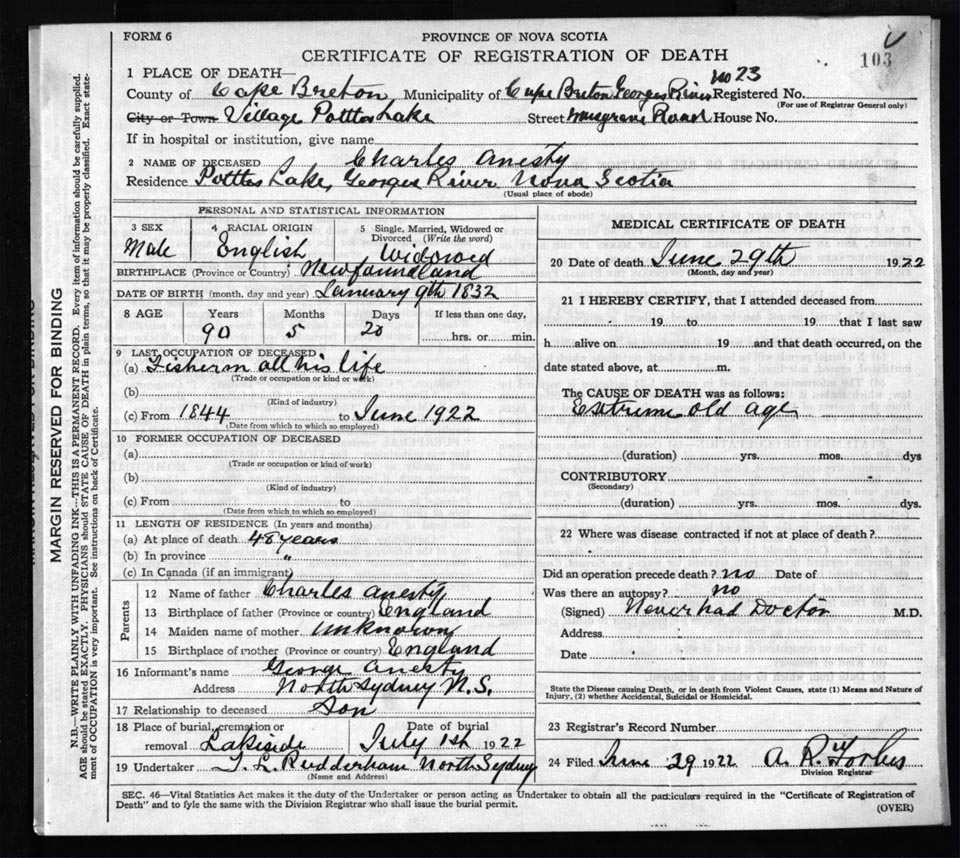 FORM 6
PROVINCE OF NOVA SCOTIA
CERTIFICATE OF REGISTRATION OF DEATH
103
1 PLACE OF DEATH—
no 23
County of Cape Breton Municipality of Cape Breton Georges River Registered No.
(For use of Registrar General only)
City or Town Village Pottles Lake Street Musgrave Road House No.
If in hospital or institution, give name
2 NAME OF DECEASED Charles Anesty
Residence Pottles Lake, Georges River Nova Scotia
(Usual place of abode)
PERSONAL AND STATISTICAL INFORMATION
3 SEX Male
4 RACIAL ORIGIN English
5 Single, Married, Widowed or Divorced (Write the word) Widowed
BIRTHPLACE (Province or Country) Newfoundland
DATE OF BIRTH (month, day and year) January 9th 1832
8 AGE Years Months Days If less than one day,
90 5 20 hrs. or min.
9 LAST OCCUPATION OF DECEASED
(a) Fisherm all his life
(Trade or occupation or kind of work)
(b)
(Kind of industry)
(c) From 1844 to June 1922
(Date from which to which so employed)
10 FORMER OCCUPATION OF DECEASED
(a)
(Trade or occupation or kind of work)
(b)
(Kind of industry)
(c) From to
(Date from which to which so employed)
11 LENGTH OF RESIDENCE (In years and months)
(a) At place of death 48 years
(b) In province "
(c) In Canada (if an immigrant)
Parents
12 Name of father Charles Anesty
13 Birthplace of father (Province or country) England
14 Maiden name of mother unknown
15 Birthplace of mother (Province or country) England
16 Informant's name George Anesty
Address North Sydney N.S.
17 Relationship to deceased Son
18 Place of burial, cremation or removal Lakeside Date of burial July 1st 1922
19 Undertaker T. L. Rudderham North Sydney
(Name and Address)
MEDICAL CERTIFICATE OF DEATH
20 Date of death June 29th 1922
(Month, day and year)
21 I HEREBY CERTIFY, that I attended deceased from
19 to 19 that I last saw
h alive on 19 and that death occurred, on the
date stated above, at m.
The CAUSE OF DEATH was as follows:
Extrime old age
(duration) yrs. mos. dys
CONTRIBUTORY
(Secondary)
(duration) yrs. mos. dys.
22 Where was disease contracted if not at place of death?
Did an operation precede death? no Date of
Was there an autopsy? no
(Signed) Never had Doctor M.D.
Address
Date
State the Disease causing Death, or in death from Violent Causes, state (1) Means and Nature of
Injury, (2) whether Accidental, Suicidal or Homicidal.
23 Registrar's Record Number
24 Filed June 29 1922 A. R. Forbes
Division Registrar
SEC. 46—Vital Statistics Act makes it the duty of the Undertaker or person acting as Undertaker to obtain all the particulars required in the "Certificate of Registration of
Death" and to fyle the same with the Division Registrar who shall issue the burial permit.
(OVER)
MARGIN RESERVED FOR BINDING
N.B.—WRITE PLAINLY WITH UNFADING INK—THIS IS A PERMANENT RECORD. Every item of information should be carefully supplied.
AGE should be stated EXACTLY. PHYSICIANS should STATE CAUSE OF DEATH in plain terms, so that it may be properly classified. Exact state-
ment of OCCUPATION is very important. See instructions on back of Certificate.